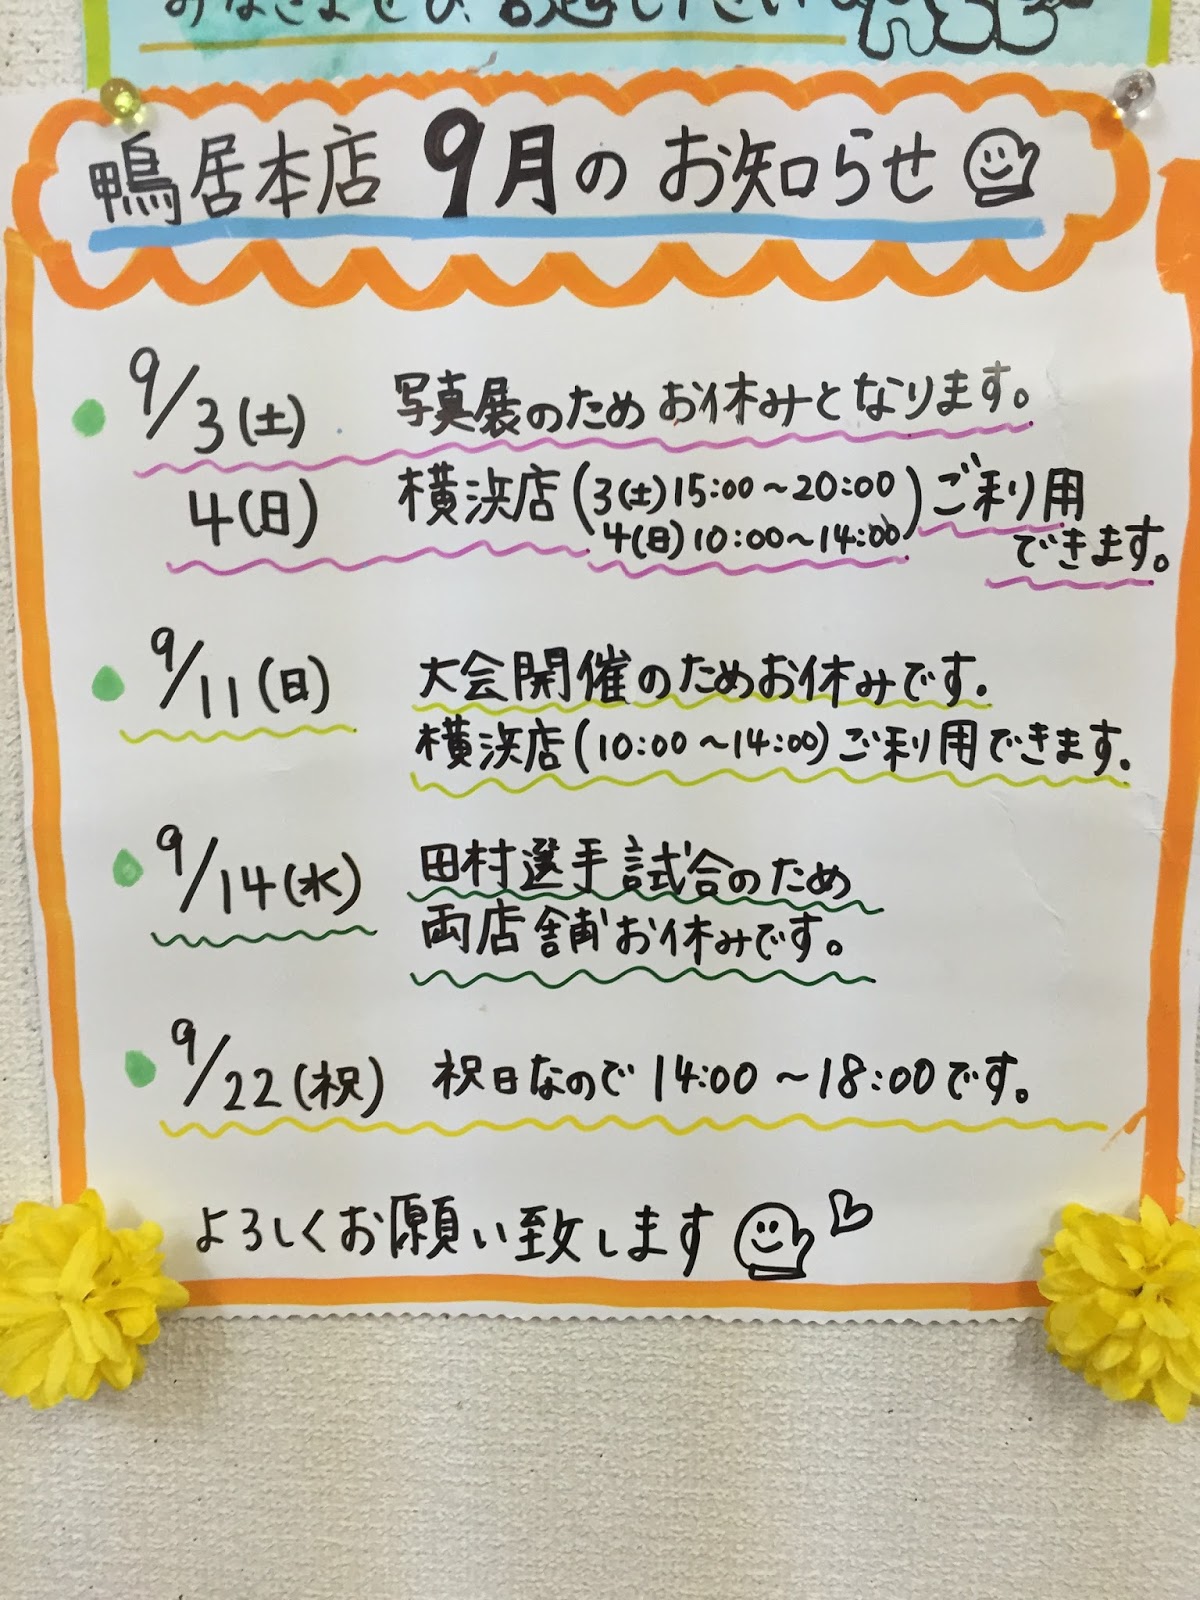 鴨居本店 9月のお知らせ
9/3(土) 写真展のためお休みとなります。
4(日) 横浜店(3(土)15:00～20:00
4(日)10:00～14:00)ご利用
できます。
9/11(日) 大会開催のためお休みです。
横浜店(10:00～14:00)ご利用できます。
9/14(水) 田村選手試合のため
両店舗お休みです。
9/22(祝) 祝日なので14:00～18:00です。
よろしくお願い致します